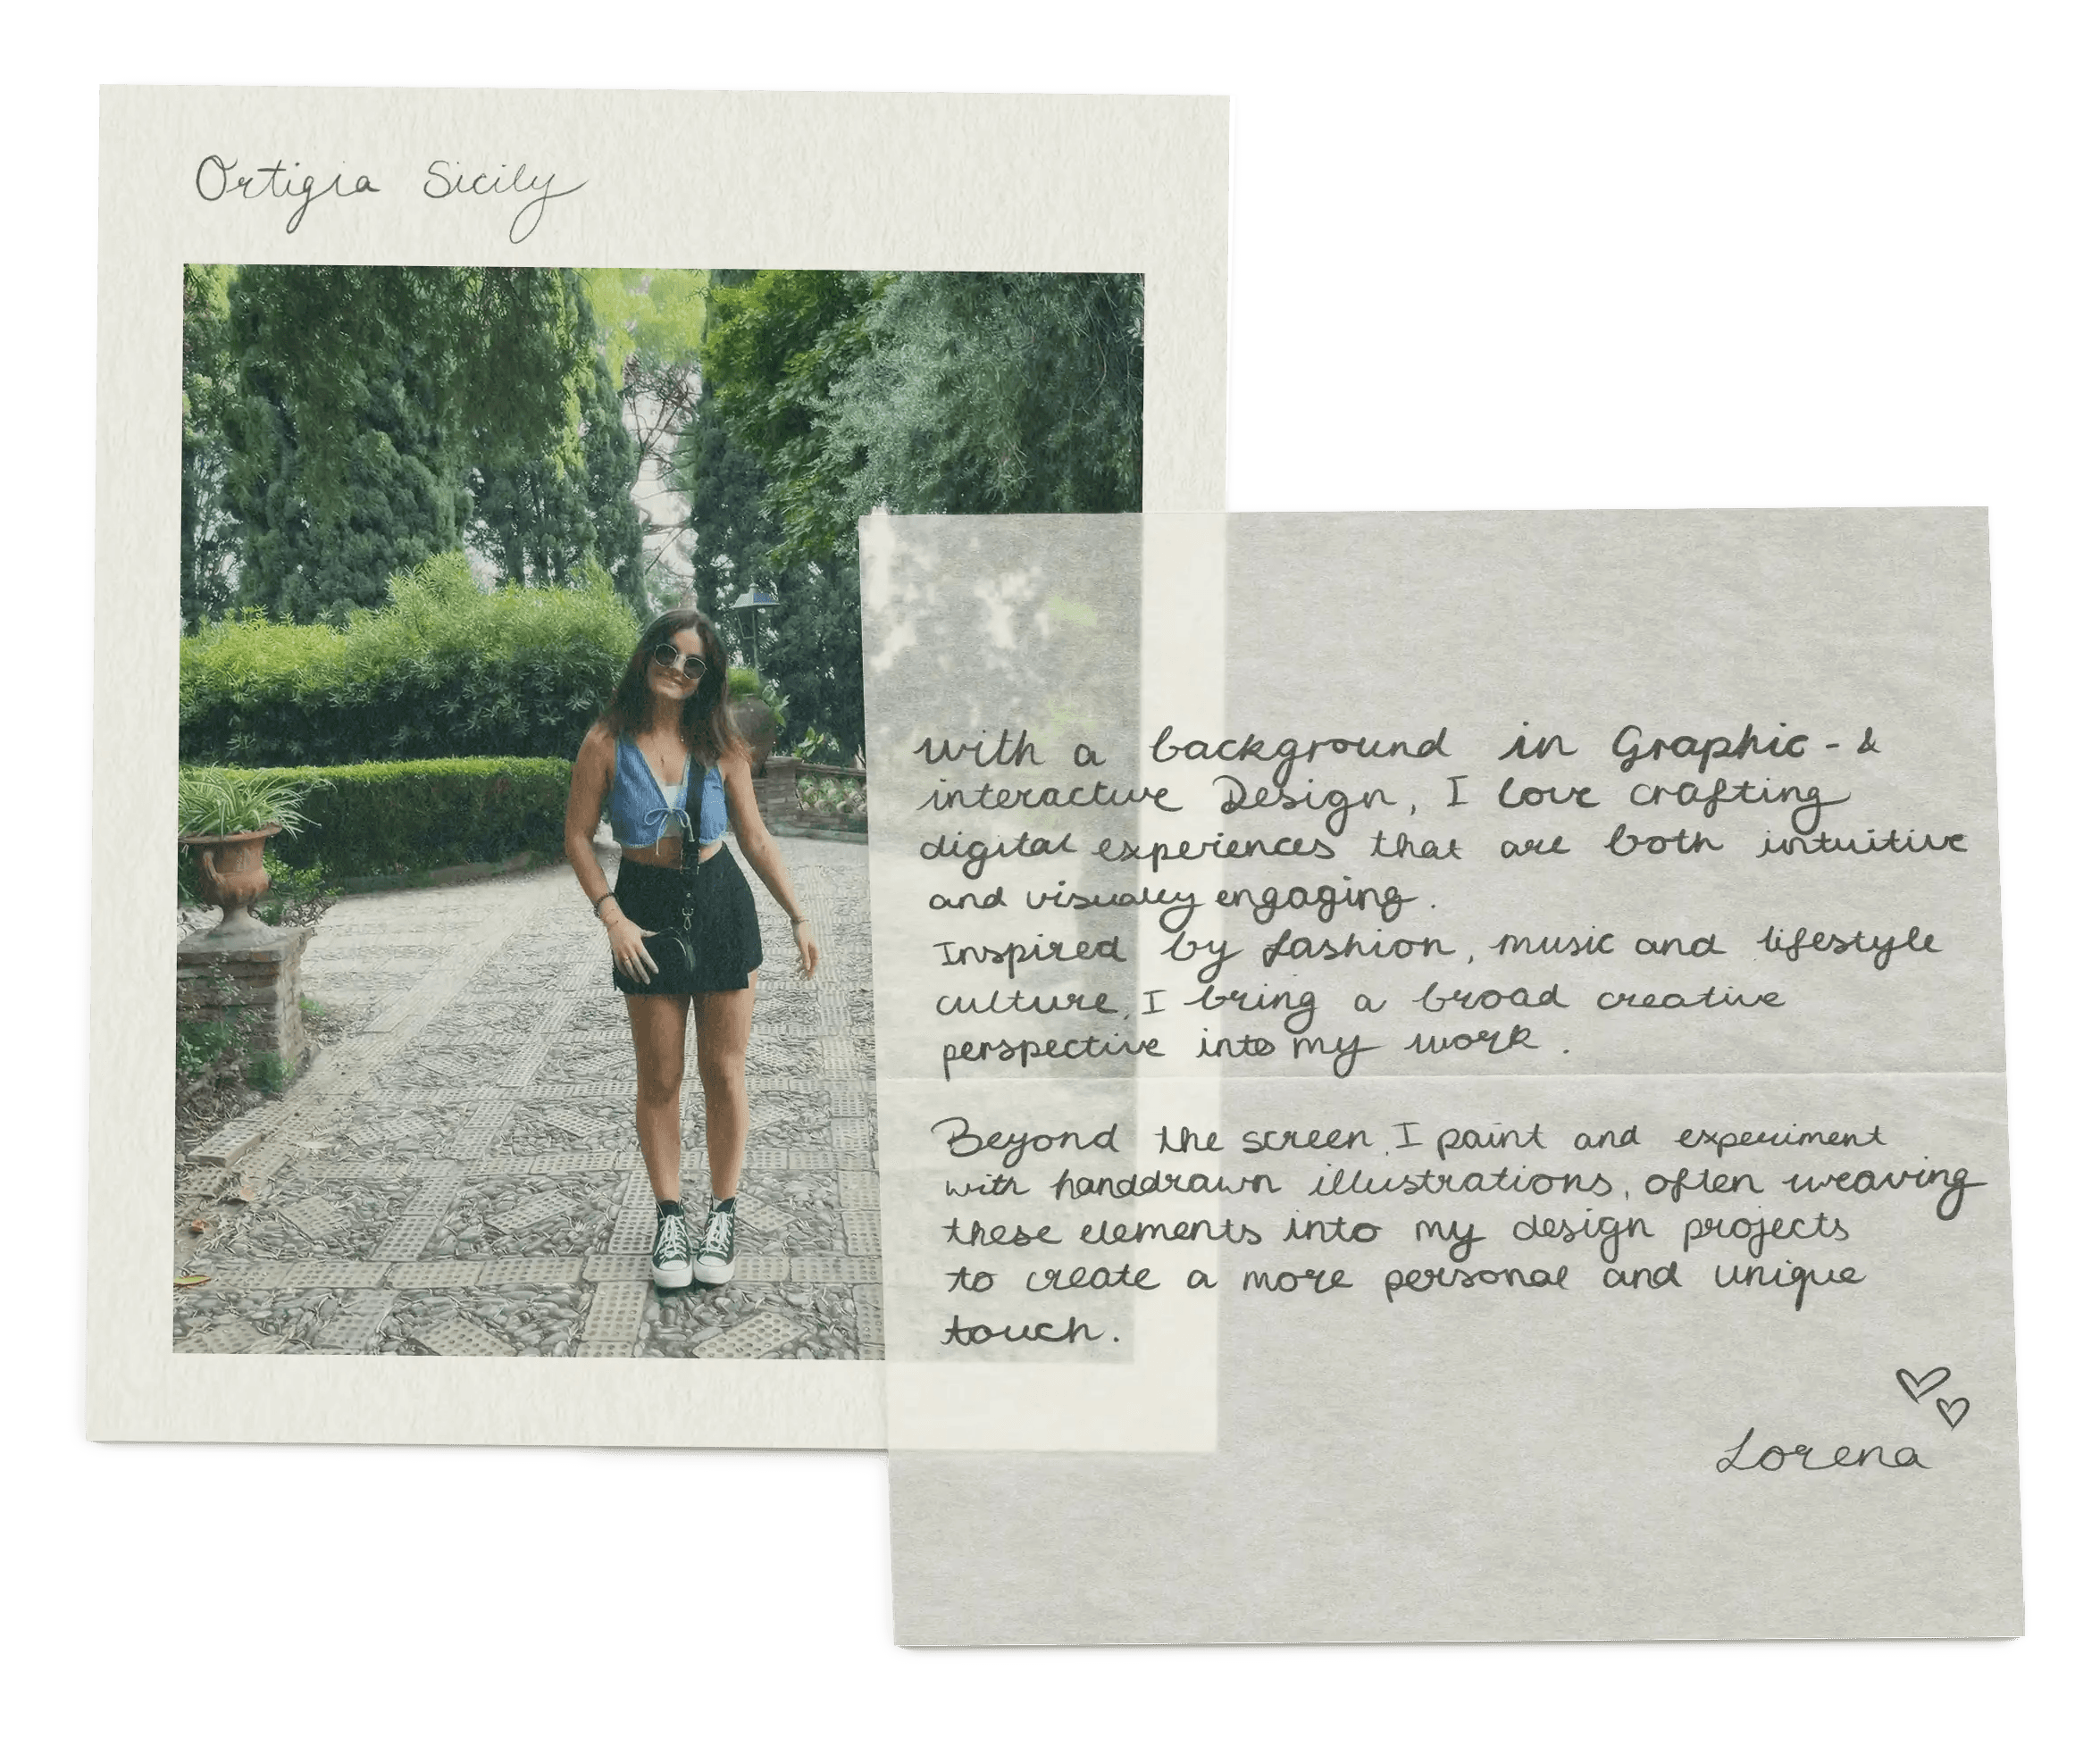 Ortigia Sicily
with a background in Graphic - &
interactive Design, I love crafting
digital experiences that are both intuitive
and visually engaging.
Inspired by fashion, music and lifestyle
culture, I bring a broad creative
perspective into my work.
Beyond the screen, I paint and experiment
with handdrawn illustrations, often weaving
these elements into my design projects
to create a more personal and unique
touch.
Lorena